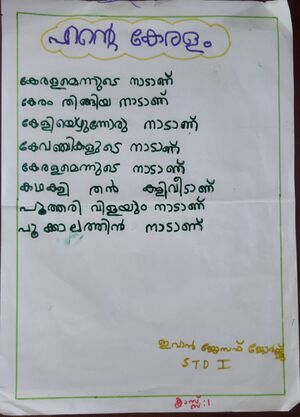 എന്റെ കേരളം
കേരളമെന്നുടെ നാടാണ്
കേരം തിങ്ങിയ നാടാണ്
കേളിയെഴുന്നോരു നാടാണ്
കേവഞ്ചികളുടെ നാടാണ്
കേരളമെന്നുടെ നാടാണ്
കഥകളി തൻ കളിവീടാണ്
പുത്തരി വിളയും നാടാണ്
പൂക്കാലത്തിൻ നാടാണ്
ഇവാൻ ജോസഫ് ജോർജ്ജ്
STD I
ക്ലാസ്സ്:1